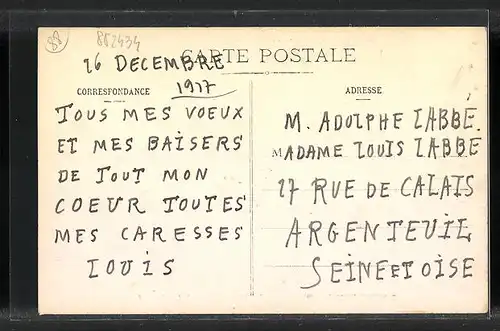 88
852434
CARTE POSTALE
26 DECEMBRE
1917
CORRESPONDANCE
ADRESSE
TOUS MES VOEUX
ET MES BAISERS
DE TOUT MON
COEUR TOUTES
MES CARESSES
LOUIS
M. ADOLPHE LABBÉ
MADAME LOUIS LABBE
27 RUE DE CALAIS
ARGENTEUIL
SEINE ET OISE